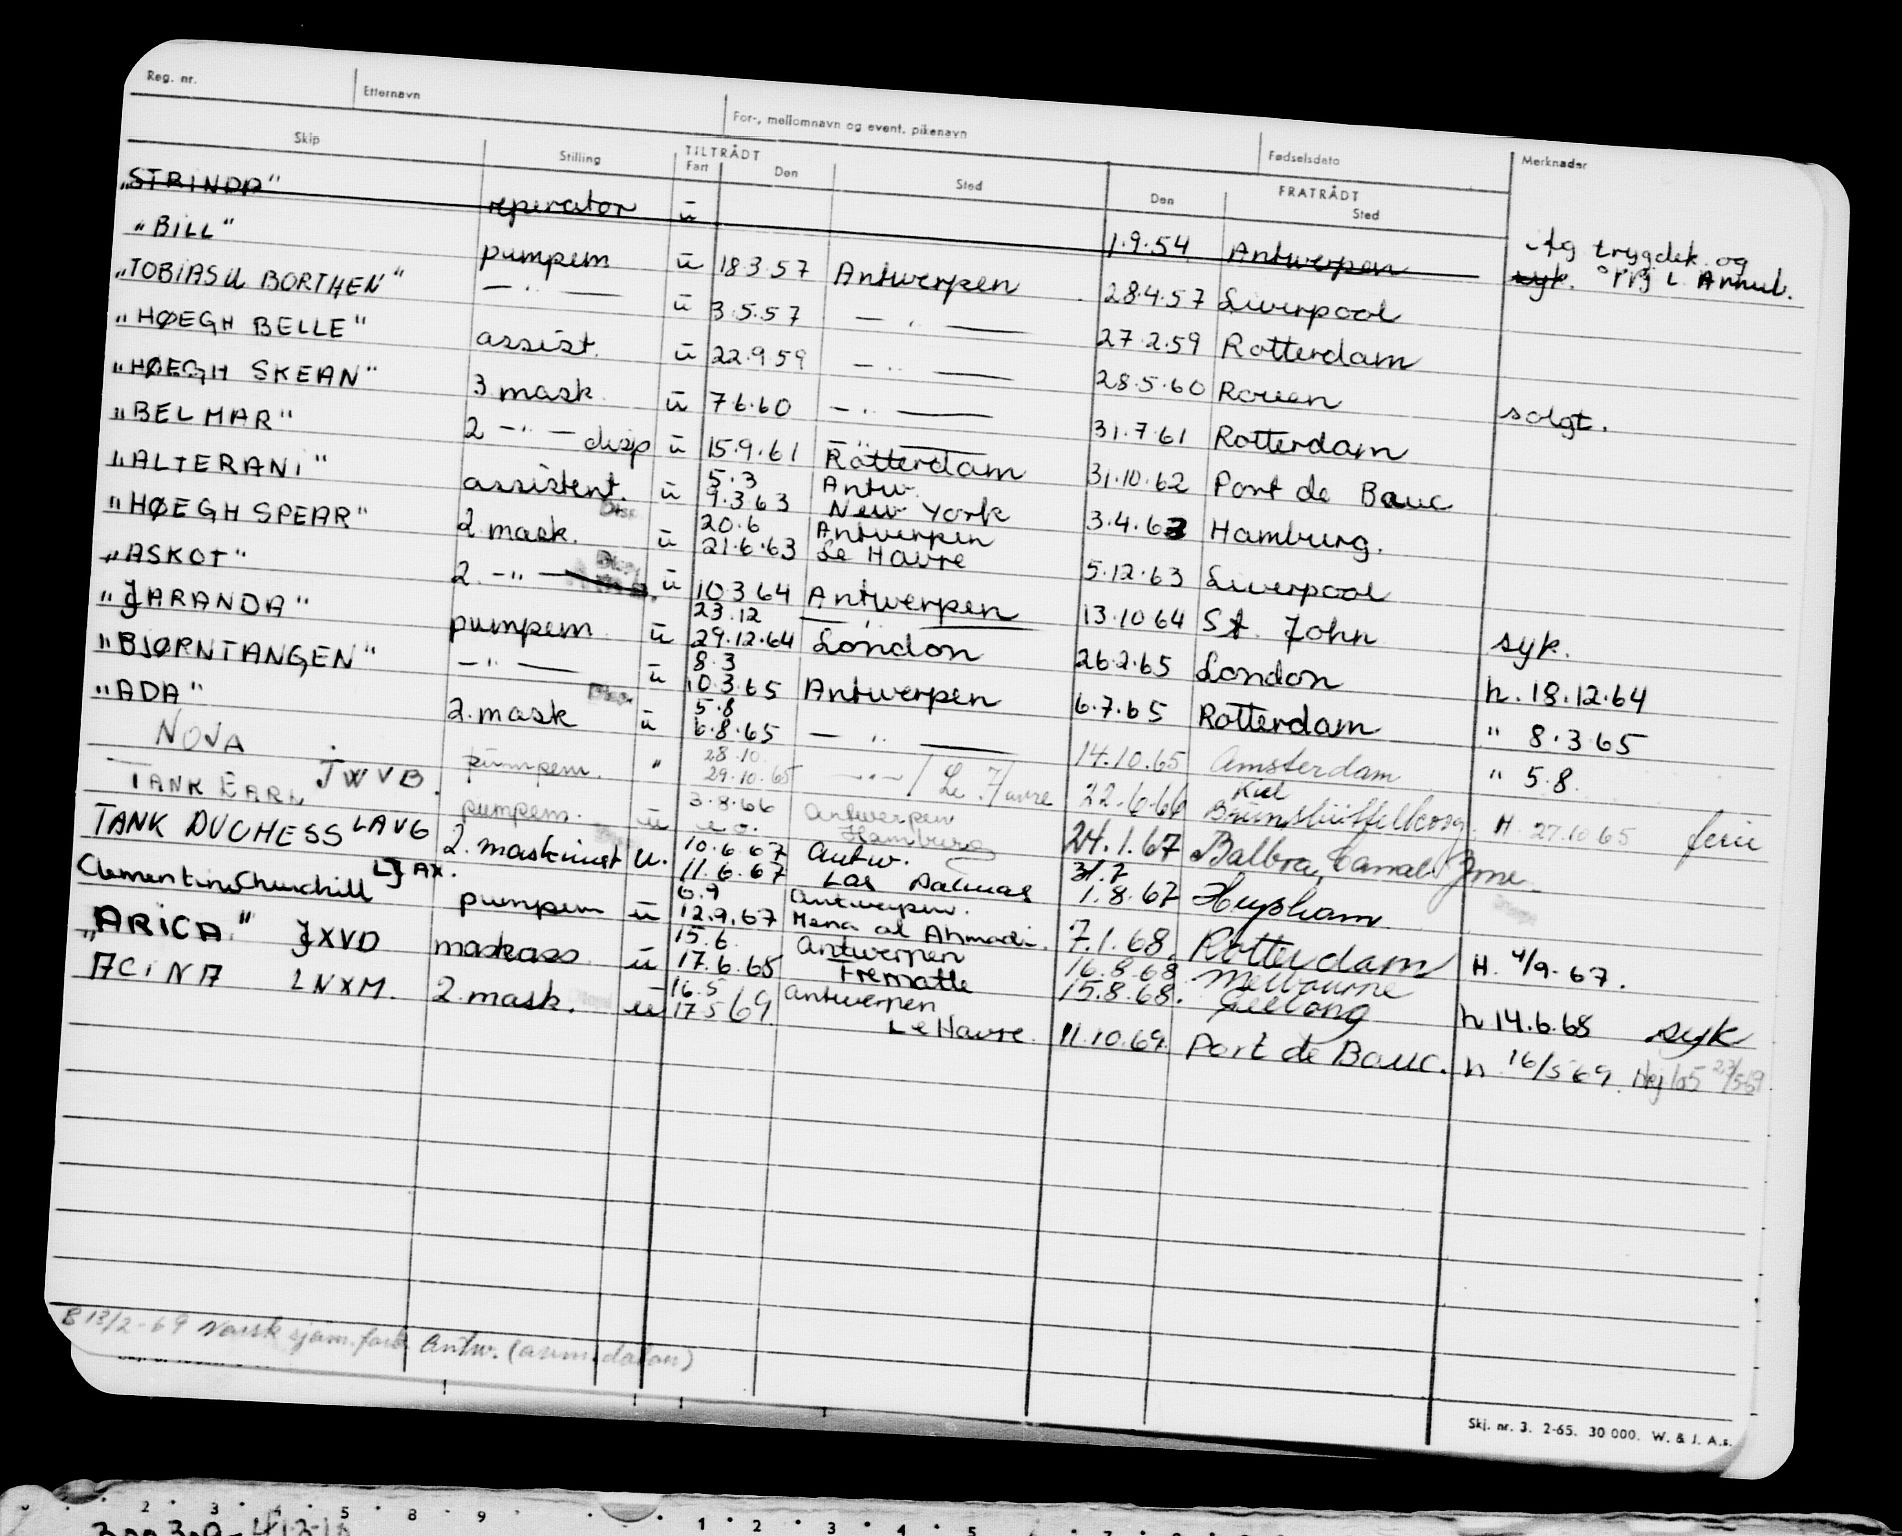 Reg. nr. Etternavn For-, mellomnavn og event. pikenavn Fødselsdato Merknader
Skip Stilling TILTRÅDT Fart Den Sted FRATRÅDT Den Sted
"STRINDA" reparator u 1.9.54 Antwerpen Ag trygdek. og syk. Annul.
"BILL" pumpem u 18.3.57 Antwerpen 28.4.57 Liverpool
"TOBIAS U BORTHEN" — " — u 3.5.57 — " — 27.2.59 Rotterdam
"HØEGH BELLE" assist. u 22.9.59 — " — 28.5.60 Rouen solgt.
"HØEGH SKEAN" 3 mask. u 7.6.60 — " — 31.7.61 Rotterdam
"BELMAR" 2 — " — disp u 15.9.61 Rotterdam 31.10.62 Port de Bouc
"ALTERANI" assistent. u 5.3 Antw. 9.3.63 New York 3.4.63 Hamburg.
"HØEGH SPEAR" 2 mask. Disp u 20.6 Antwerpen 21.6.63 Le Havre 5.12.63 Liverpool
"ASKOT" 2. — " — Disp. u 10.3.64 Antwerpen 13.10.64 St. John syk.
"JARANDA" pumpem u 23.12 29.12.64 London 26.2.65 London h. 18.12.64
"BJØRNTANGEN" — " — u 8.3 10.3.65 Antwerpen 6.7.65 Rotterdam " 8.3.65
"ADA" 2. mask Disp. u 5.8 6.8.65 — " — 14.10.65 Amsterdam " 5.8.
NOVA JWVB. pumpem. " 28.10. 29.10.65 — " — / Le Havre 22.6.66 Kiel H. 27.10.65 ferie
TANK EARL pumpem. u 3.8.66 Antwerpen Hamburg 24.1.67 Balboa, Canal Zone
TANK DUCHESS LAVG 2. maskinist u. 10.6.67 Antw. 11.6.67 Las Palmas 31.7 1.8.67 Heysham
Clementine Churchill LJAX. pumpem u 6.9 Antwerpen. 12.9.67 Mena al Ahmadi. 7.1.68. Rotterdam H. 4/9-67.
"ARICA" JXVD maskass u 15.6. Antwerpen 17.6.68 Frematle 16.8.68 Melbourne 15.8.68. Geelong h 14.6.68 syk
ACINA LNXM. 2. mask. u 16.5 Antwerpen 17.5.69. Le Havre 11.10.69. Port de Bouc. h 16/5 69.
B 13/2-69 Norsk sjøm.forb. Antw. (avm. datoen)
Skj. nr. 3. 2-65. 30 000. W. & J. A.s.
2 3 4 5 8 9 1 2 3 4 5